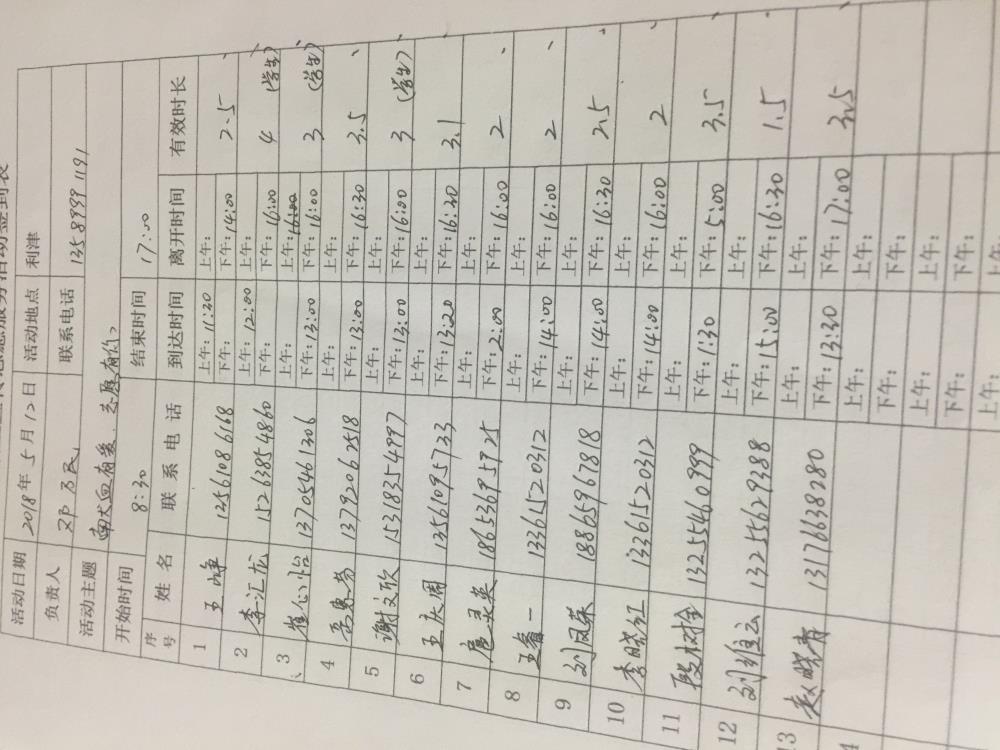 活动日期 2018年5月12日 活动地点 利津
负责人 联系电话 135 8999 1191
活动主题 献血有爱、志愿有约
开始时间 8:30 结束时间 17:00
序号 姓名 联系电话 到达时间 离开时间 有效时长
1 王峥 13561086168 上午:11:30 下午: 上午: 下午:14:00 2.5
2 李江龙 15263854860 上午:12:00 下午: 上午: 下午:16:00 4 (学生)
3 崔心怡 13705461206 上午: 下午:13:00 上午: 下午:16:00 3 (学生)
4 13792062518 上午: 下午:13:00 上午: 下午:16:30 3.5
5 谢文欣 15318354997 上午: 下午:13:00 上午: 下午:16:00 3 (学生)
6 王庆周 13561095733 上午: 下午:13:20 上午: 下午:16:30 3.1
7 扈灵英 18653695725 上午: 下午:2:00 上午: 下午:16:00 2
8 王春一 13361520312 上午: 下午:14:00 上午: 下午:16:00 2
9 刘凤荣 18865967818 上午: 下午:14:00 上午: 下午:16:30 2.5
10 李晓红 13361520312 上午: 下午:14:00 上午: 下午:16:00 2
11 段材金 13255460999 上午: 下午:1:30 上午: 下午:5:00 3.5
12 刘维云 13255629388 上午: 下午:15:00 上午: 下午:16:30 1.5
13 赵晓青 13176638280 上午: 下午:13:30 上午: 下午:17:00 3.5
上午: 下午: 上午: 下午:
上午: 下午: 上午: 下午:
上午: 上午: